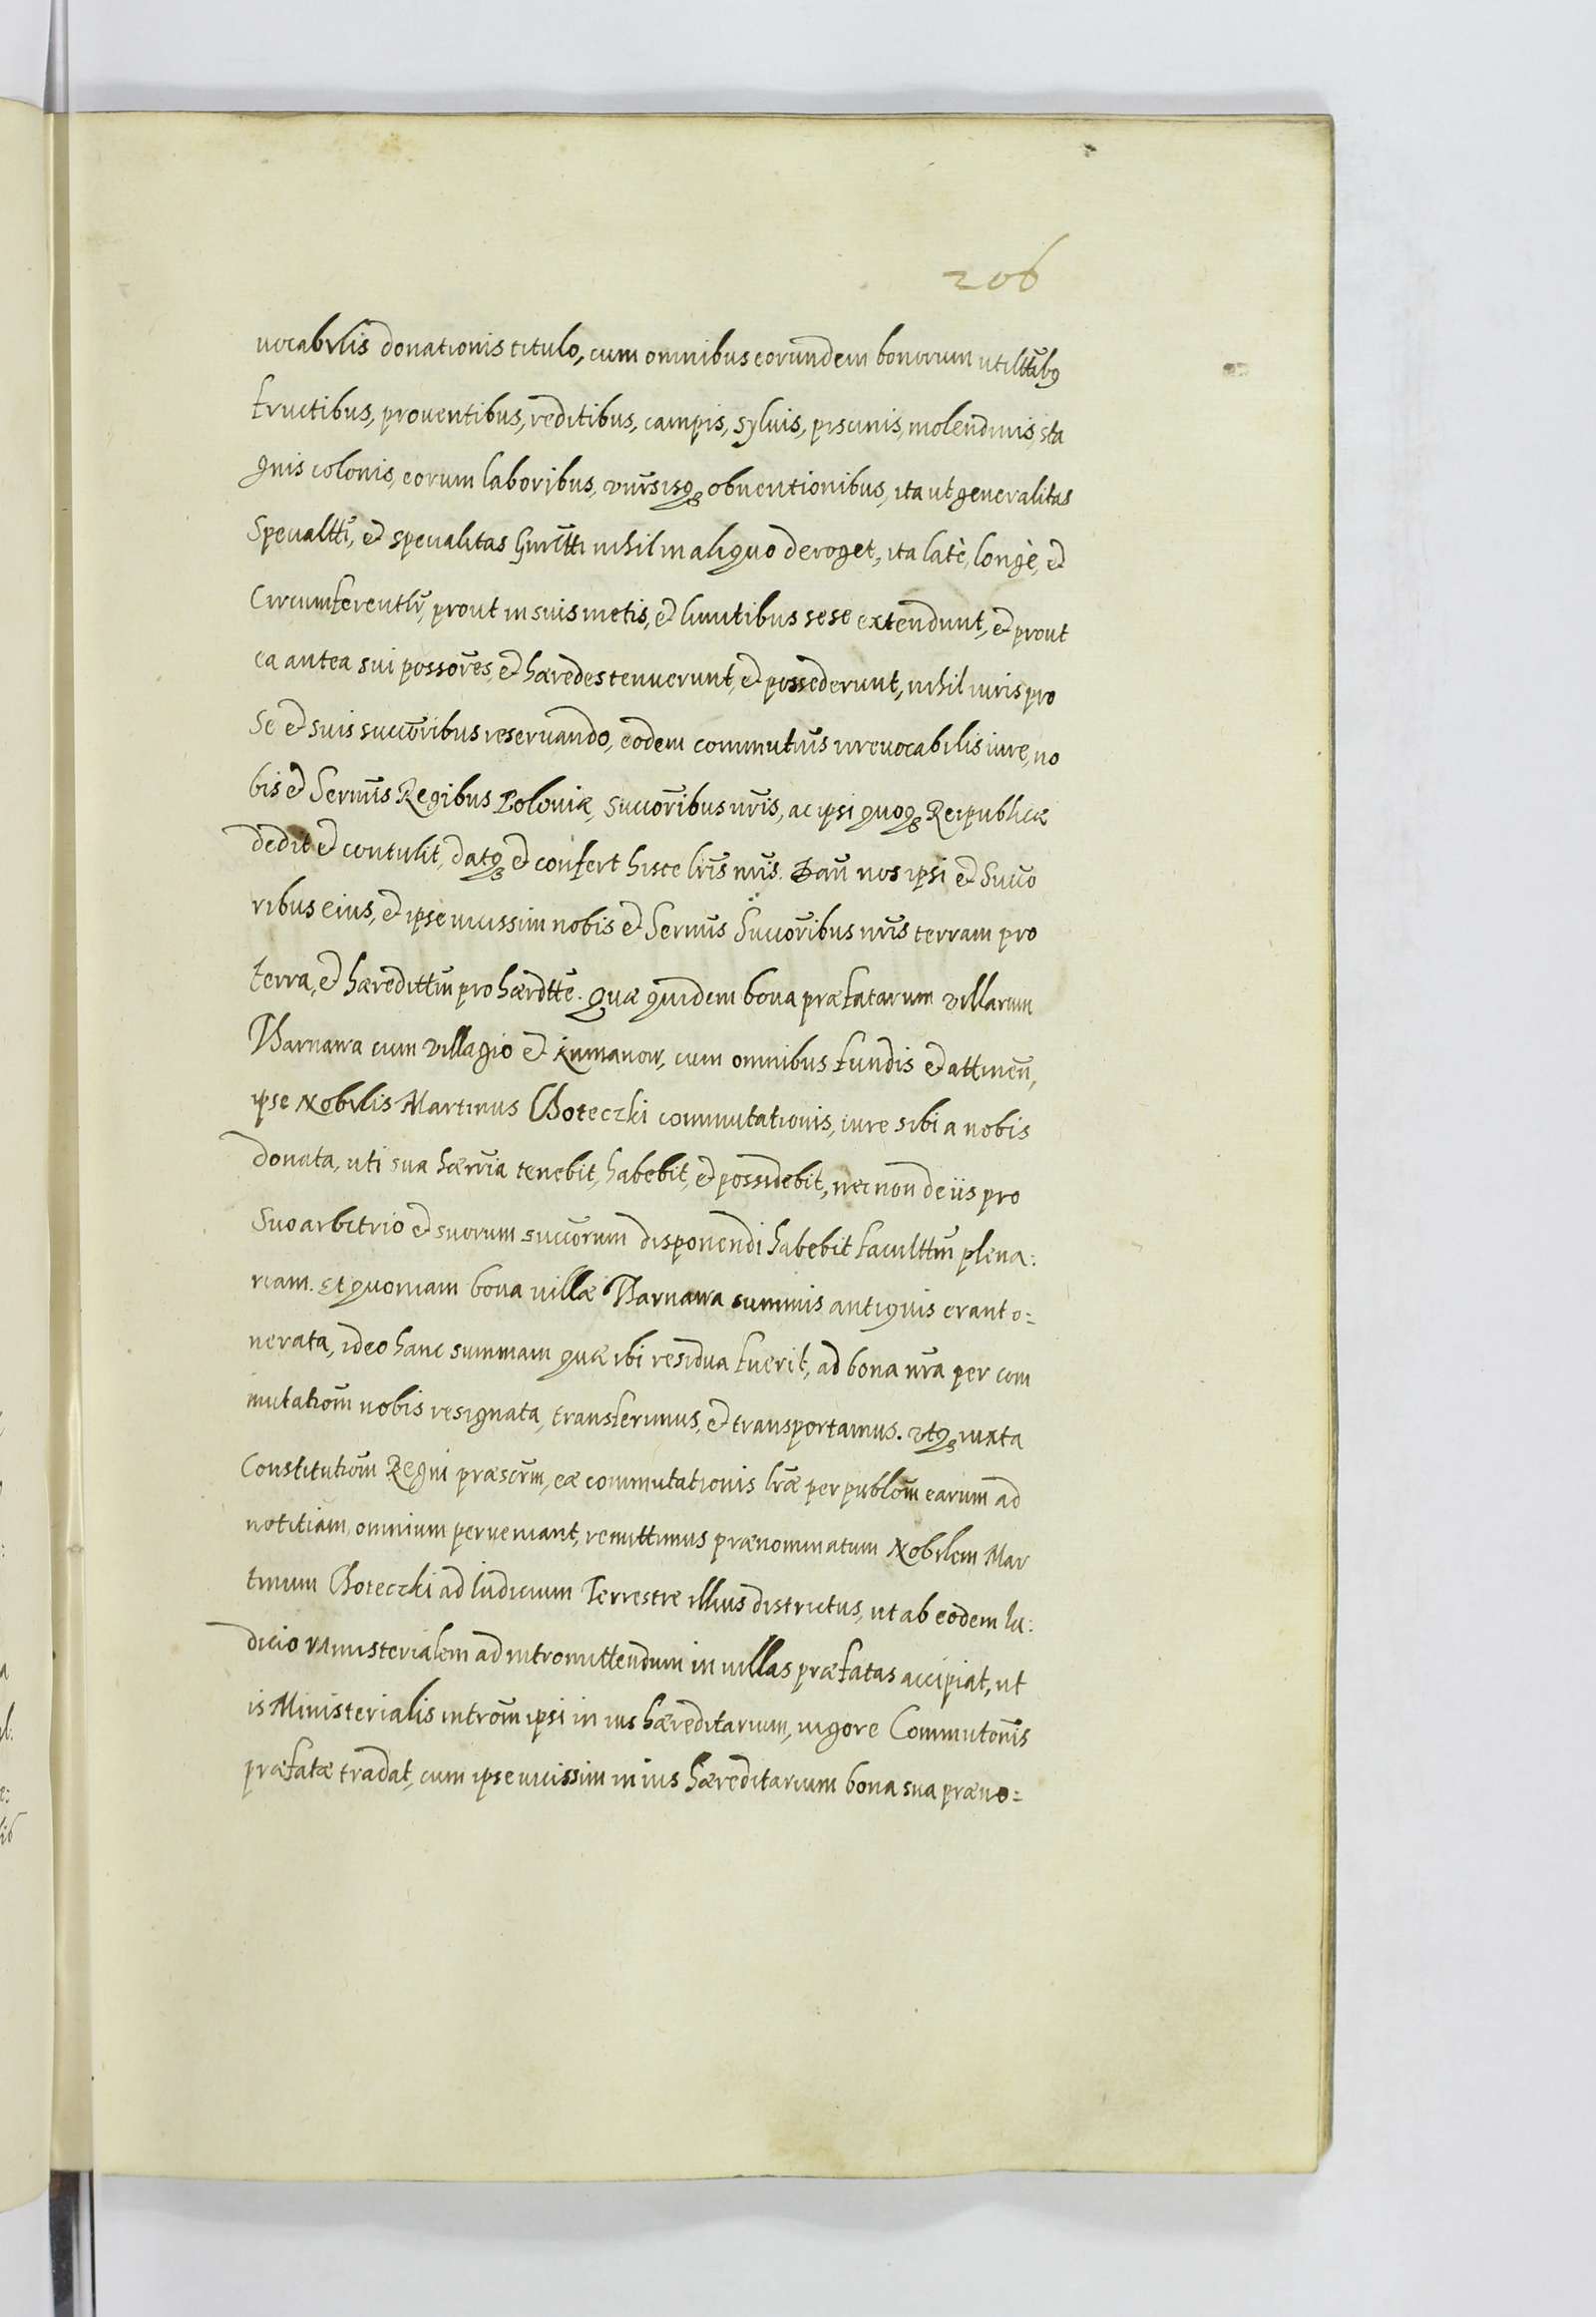 206
uocabilis donationis titulo, cum omnibus eorundem bonorum utilttibq
fructibus, prouentibus, reditibus, campis, syluis, piscinis, molendinis, sta
gnis colonis, eorum laboribus, vniũrsisq obuentionibus, ita ut generalitas
Specialtti, et specialitas Gnrltti nihil in aliquo deroget, ita latè, longè, et
Circumferentlr, prout in suis metis, et limitibus sese extendunt, et prout
ea antea sui possores, et hæredes tenuerunt, et possederunt, nihil iuris pro
se et suis succoribus reseruando, eodem commutnis irreuocabilis iure, no
bis et Sermis Regibus Poloniæ, succoribus nris, ac ipsi quoq Reipublicæ
dedit et contulit, datq et confert hisce lris nris. Dan nos ipsi et Succo
ribus eius, et ipse uicissim nobis et Sermis Succoribus nris terram pro
terra, et hæredittm pro hærdtte. Quæ quidem bona præfatarum villarum
Tharnawa cum villagio et Rymanow, cum omnibus fundis et attinen,
ipse Nobilis Martinus Choteczki commutationis, iure sibi a nobis
donata, uti sua hærria tenebit, habebit, et possidebit, nec non de iis pro
suo arbitrio et suorum succorum disponendi habebit facultttm plena:
riam. Et quoniam bona uillæ Tharnawa summis antiquis erant o=
nerata, ideo hanc summam quæ ibi residua fuerit, ad bona nra per com
mutatiom nobis resignata, transferimus, et transportamus. vtq iuxta
Constitutiom Regni præscrm, eæ commutationis lræ per publom earum ad
notitiam omnium perueniant, remittimus prænominatum Nobilem Mar
tinum Choteczki ad Iudicium Terrestre illius districtus, ut ab eodem Iu:
dicio Ministerialem ad intromittendum in uillas præfatas accipiat, ut
is Ministerialis introm ipsi in ius hæreditarium, uigore Commutonis
præfatæ tradat, cum ipse uicissim in ius hæreditarium bona sua præno=